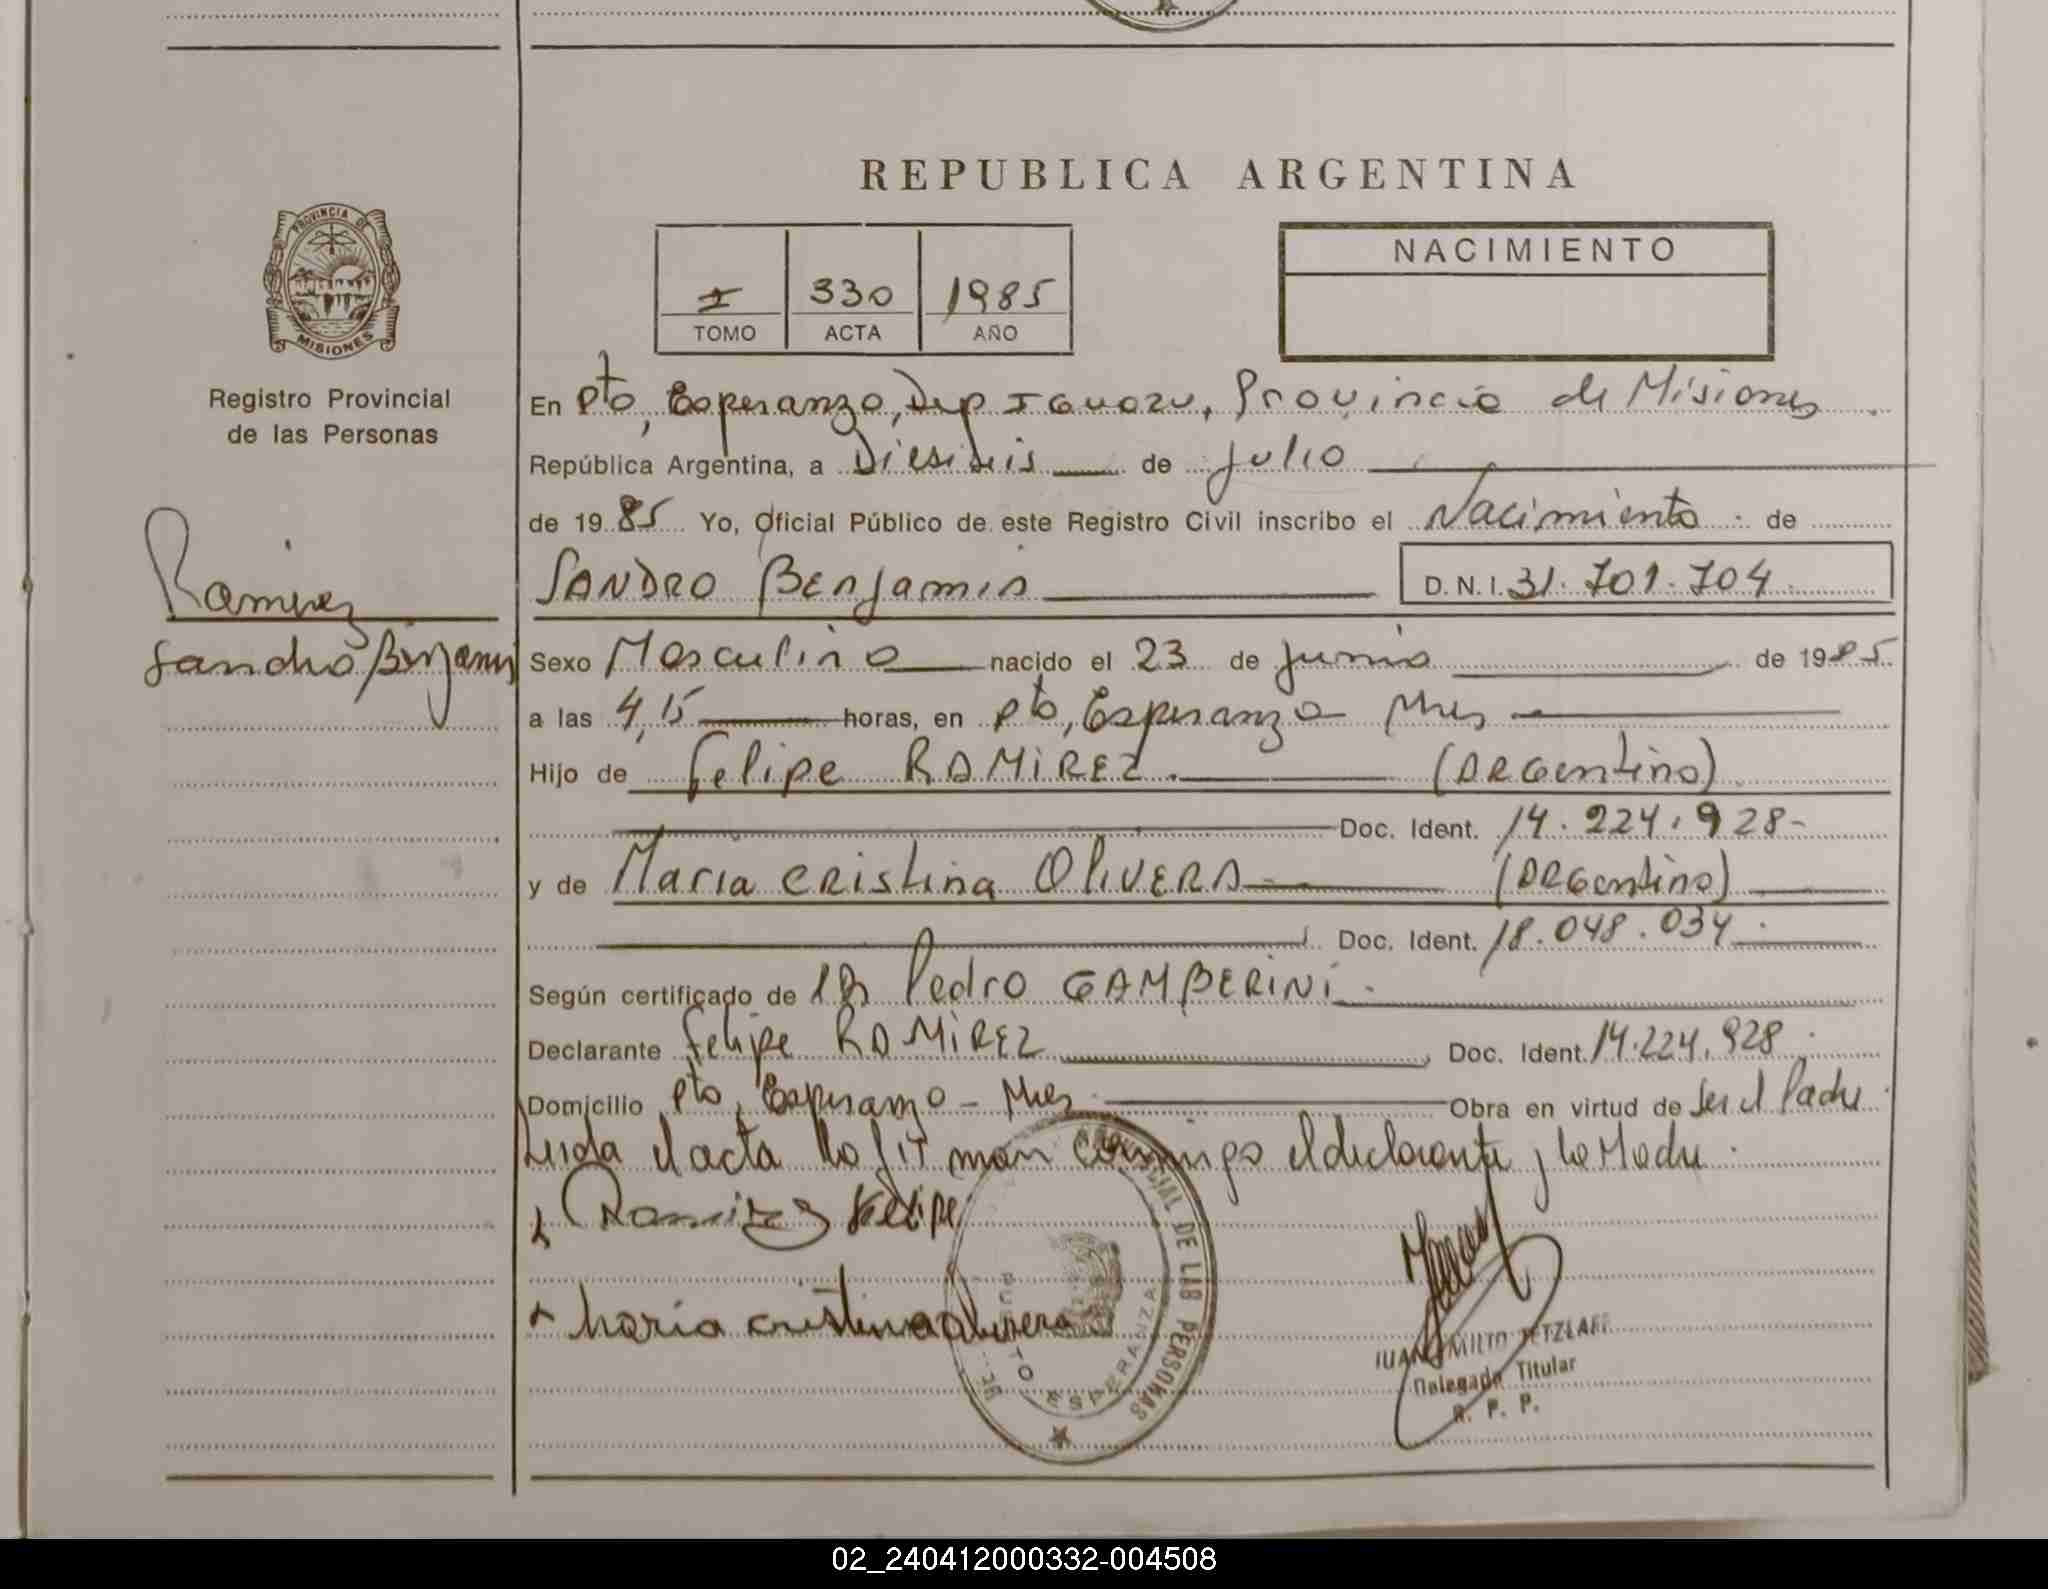 REPUBLICA ARGENTINA
PROVINCIA DE
MISIONES
Registro Provincial
de las Personas
I 330 1985
TOMO ACTA AÑO
NACIMIENTO
En Pto, Esperanza, Dep Iguazu, Provincia de Misiones
República Argentina, a Dieciseis de Julio
de 1985 Yo, Oficial Público de este Registro Civil inscribo el Nacimiento de
SANDRO BENJamin D. N. I. 31.701.704
Ramirez
Sandro Benjamin
Sexo Masculino nacido el 23 de Junio de 1985
a las 4,15 horas, en Pto, Esperanza Mnes
Hijo de Felipe RAMIREZ (ARGentino)
Doc. Ident. 14.224.928-
y de Maria CRistina OliVERA (ARGentina)
Doc. Ident. 18.048.034
Según certificado de Pedro GAMBERINI
Declarante Felipe RAMIREZ Doc. Ident. 14.224.928
Domicilio Pto, Esperanza - Mnes Obra en virtud de Ser el Padre
Leida el acta la firman conmigo el declarante y la Madre
Ramirez Felipe
x Maria cristina olivera
PROVINCIAL DE LAS PERSONAS
PUERTO ESPERANZA
JUAN EMILIO TETZLAFF
Delegado Titular
R. P. P.
02_240412000332-004508